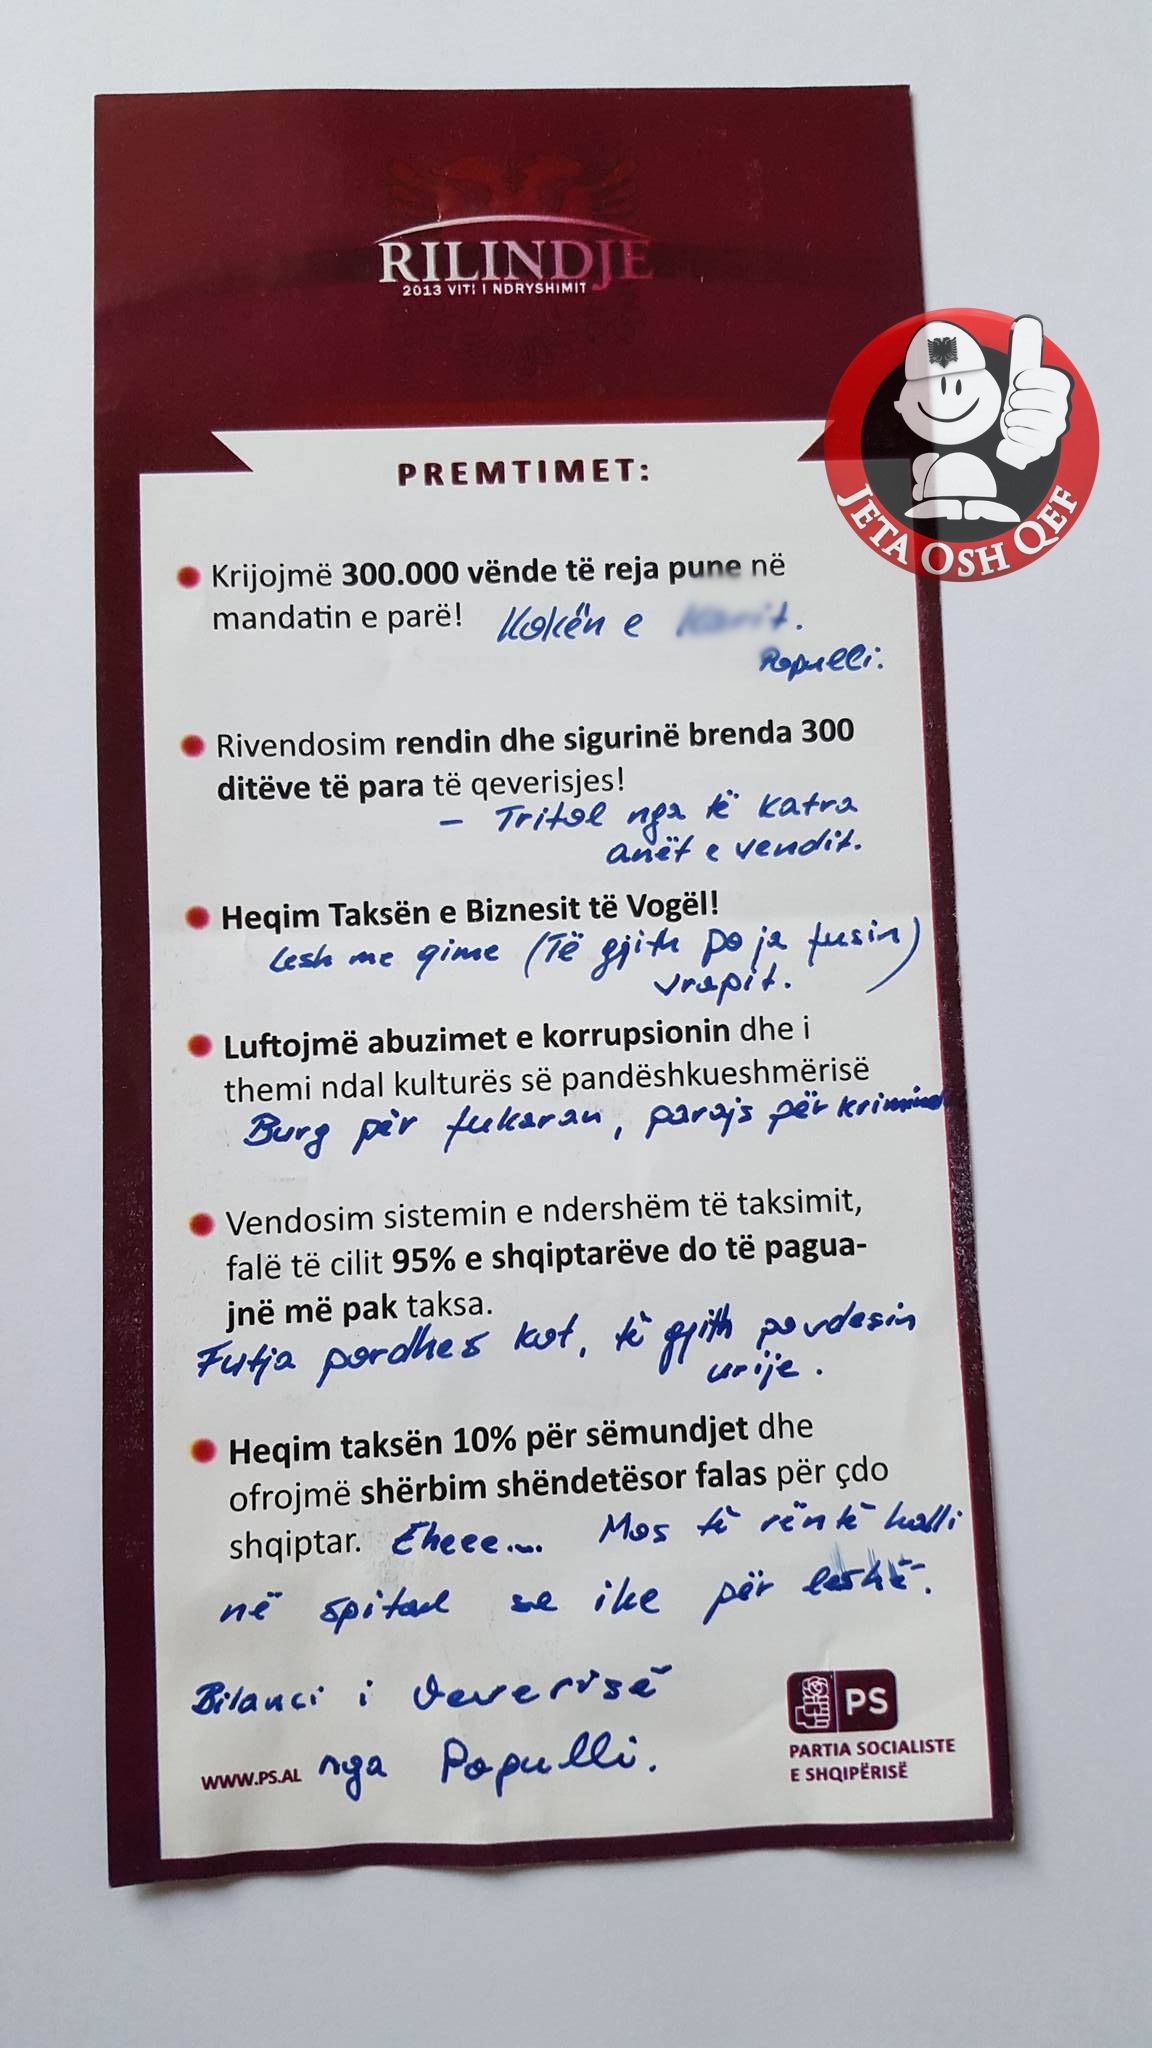 RILINDJE
2013 VITI I NDRYSHIMIT
JETA OSH QEF
PREMTIMET:
Krijojmë 300.000 vënde të reja pune në
mandatin e parë! Kokën e
Populli.
Rivendosim rendin dhe sigurinë brenda 300
ditëve të para të qeverisjes!
- Tritol nga të katra
anët e vendit.
Heqim Taksën e Biznesit të Vogël!
Lesh me qime (Të gjith po ja fusin)
vrapit.
Luftojmë abuzimet e korrupsionin dhe i
themi ndal kulturës së pandëshkueshmërisë
Burg për fukaran, parajs për
Vendosim sistemin e ndershëm të taksimit,
falë të cilit 95% e shqiptarëve do të pagua-
jnë më pak taksa.
Futja pordhes kot, të gjith po vdesin
urije.
Heqim taksën 10% për sëmundjet dhe
ofrojmë shërbim shëndetësor falas për çdo
shqiptar. Eheee.... Mos të rëntë halli
në spital se ike për leshi.
Bilanci i Qeverisë
WWW.PS.AL nga Populli.
PS
PARTIA SOCIALISTE
E SHQIPËRISË